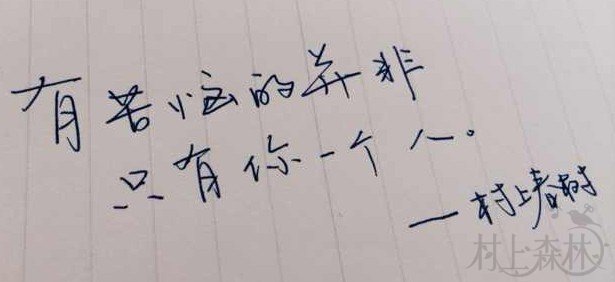 有苦恼的并非
只有你一个人。
—村上春树
村上森林